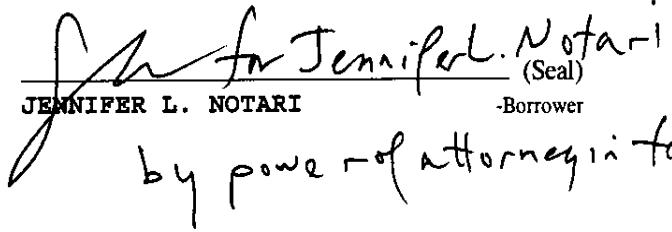 for Jennifer L. Notari
(Seal)
JENNIFER L. NOTARI -Borrower
by power of attorney in